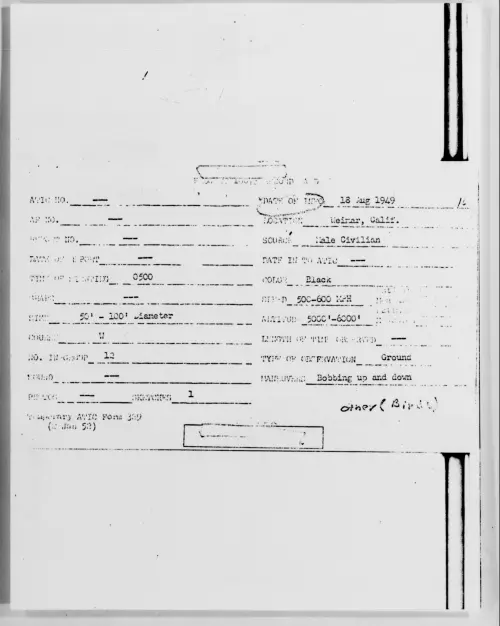 ATIC NO. -- DATE OF INFO 18 Aug 1949
AF NO. -- LOCATION Weimar, Calif.
REPORT NO. -- SOURCE Male Civilian
DATE OF REPORT -- DATE IN TO ATIC --
TIME OF SIGHTING 0500 COLOR Black
SHAPE -- SPEED 500-600 MPH
SIZE 50' - 100' Diameter ALTITUDE 5000'-6000'
COURSE W LENGTH OF TIME OBSERVED --
NO. IN GROUP 12 TYPE OF OBSERVATION Ground
SOUND -- MANEUVERS Bobbing up and down
PHOTOS -- SKETCHES 1
other (Birds)
Temporary ATIC Form 329
(2 Jan 52)